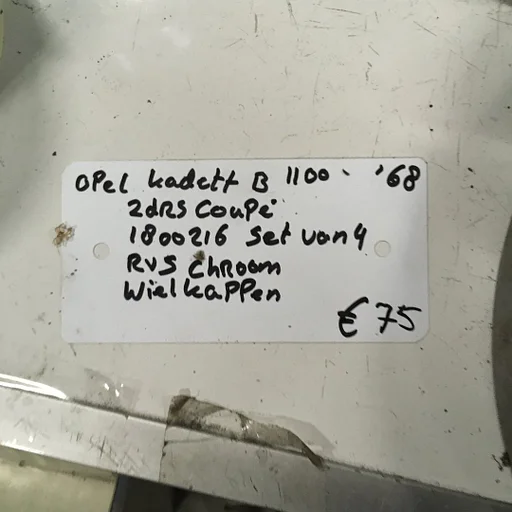 OPel kadett B 1100 '68
2dRS Coupé
1800216 Set van 4
RVS ChRoom
WielkaPPen
€ 75